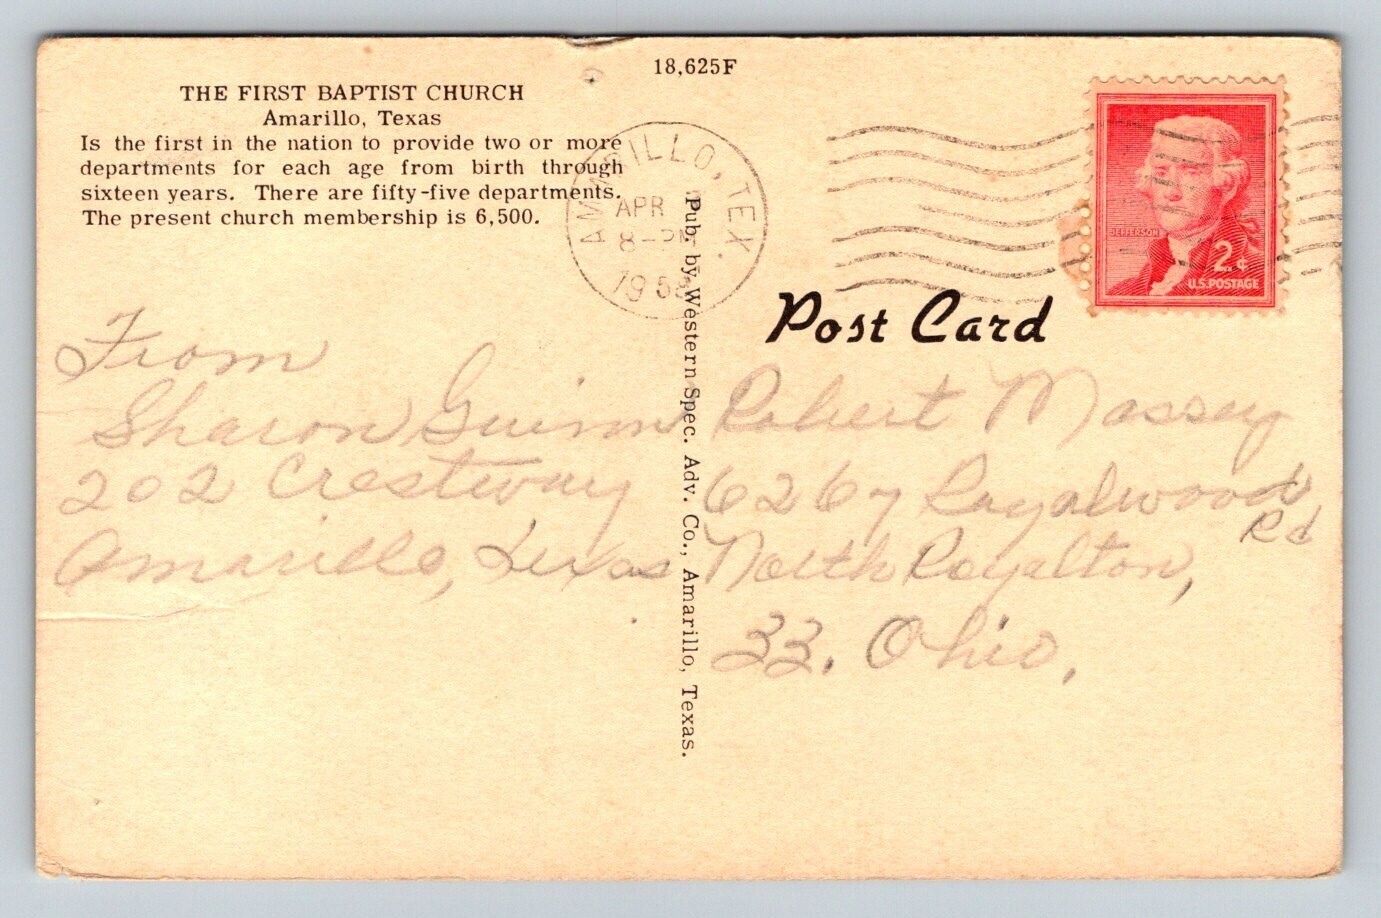 18,625F
THE FIRST BAPTIST CHURCH
Amarillo, Texas
Is the first in the nation to provide two or more
departments for each age from birth through
sixteen years. There are fifty-five departments.
The present church membership is 6,500.
AMARILLO, TEX.
APR
8-PM
195
JEFFERSON
2¢
U.S. POSTAGE
Post Card
Pub. by Western Spec. Adv. Co., Amarillo, Texas.
From
Sharon Guinn
202 Crestway
Amarillo, Texas
Robert Massey
6267 Royalwood
Rd
North Royalton,
33. Ohio.